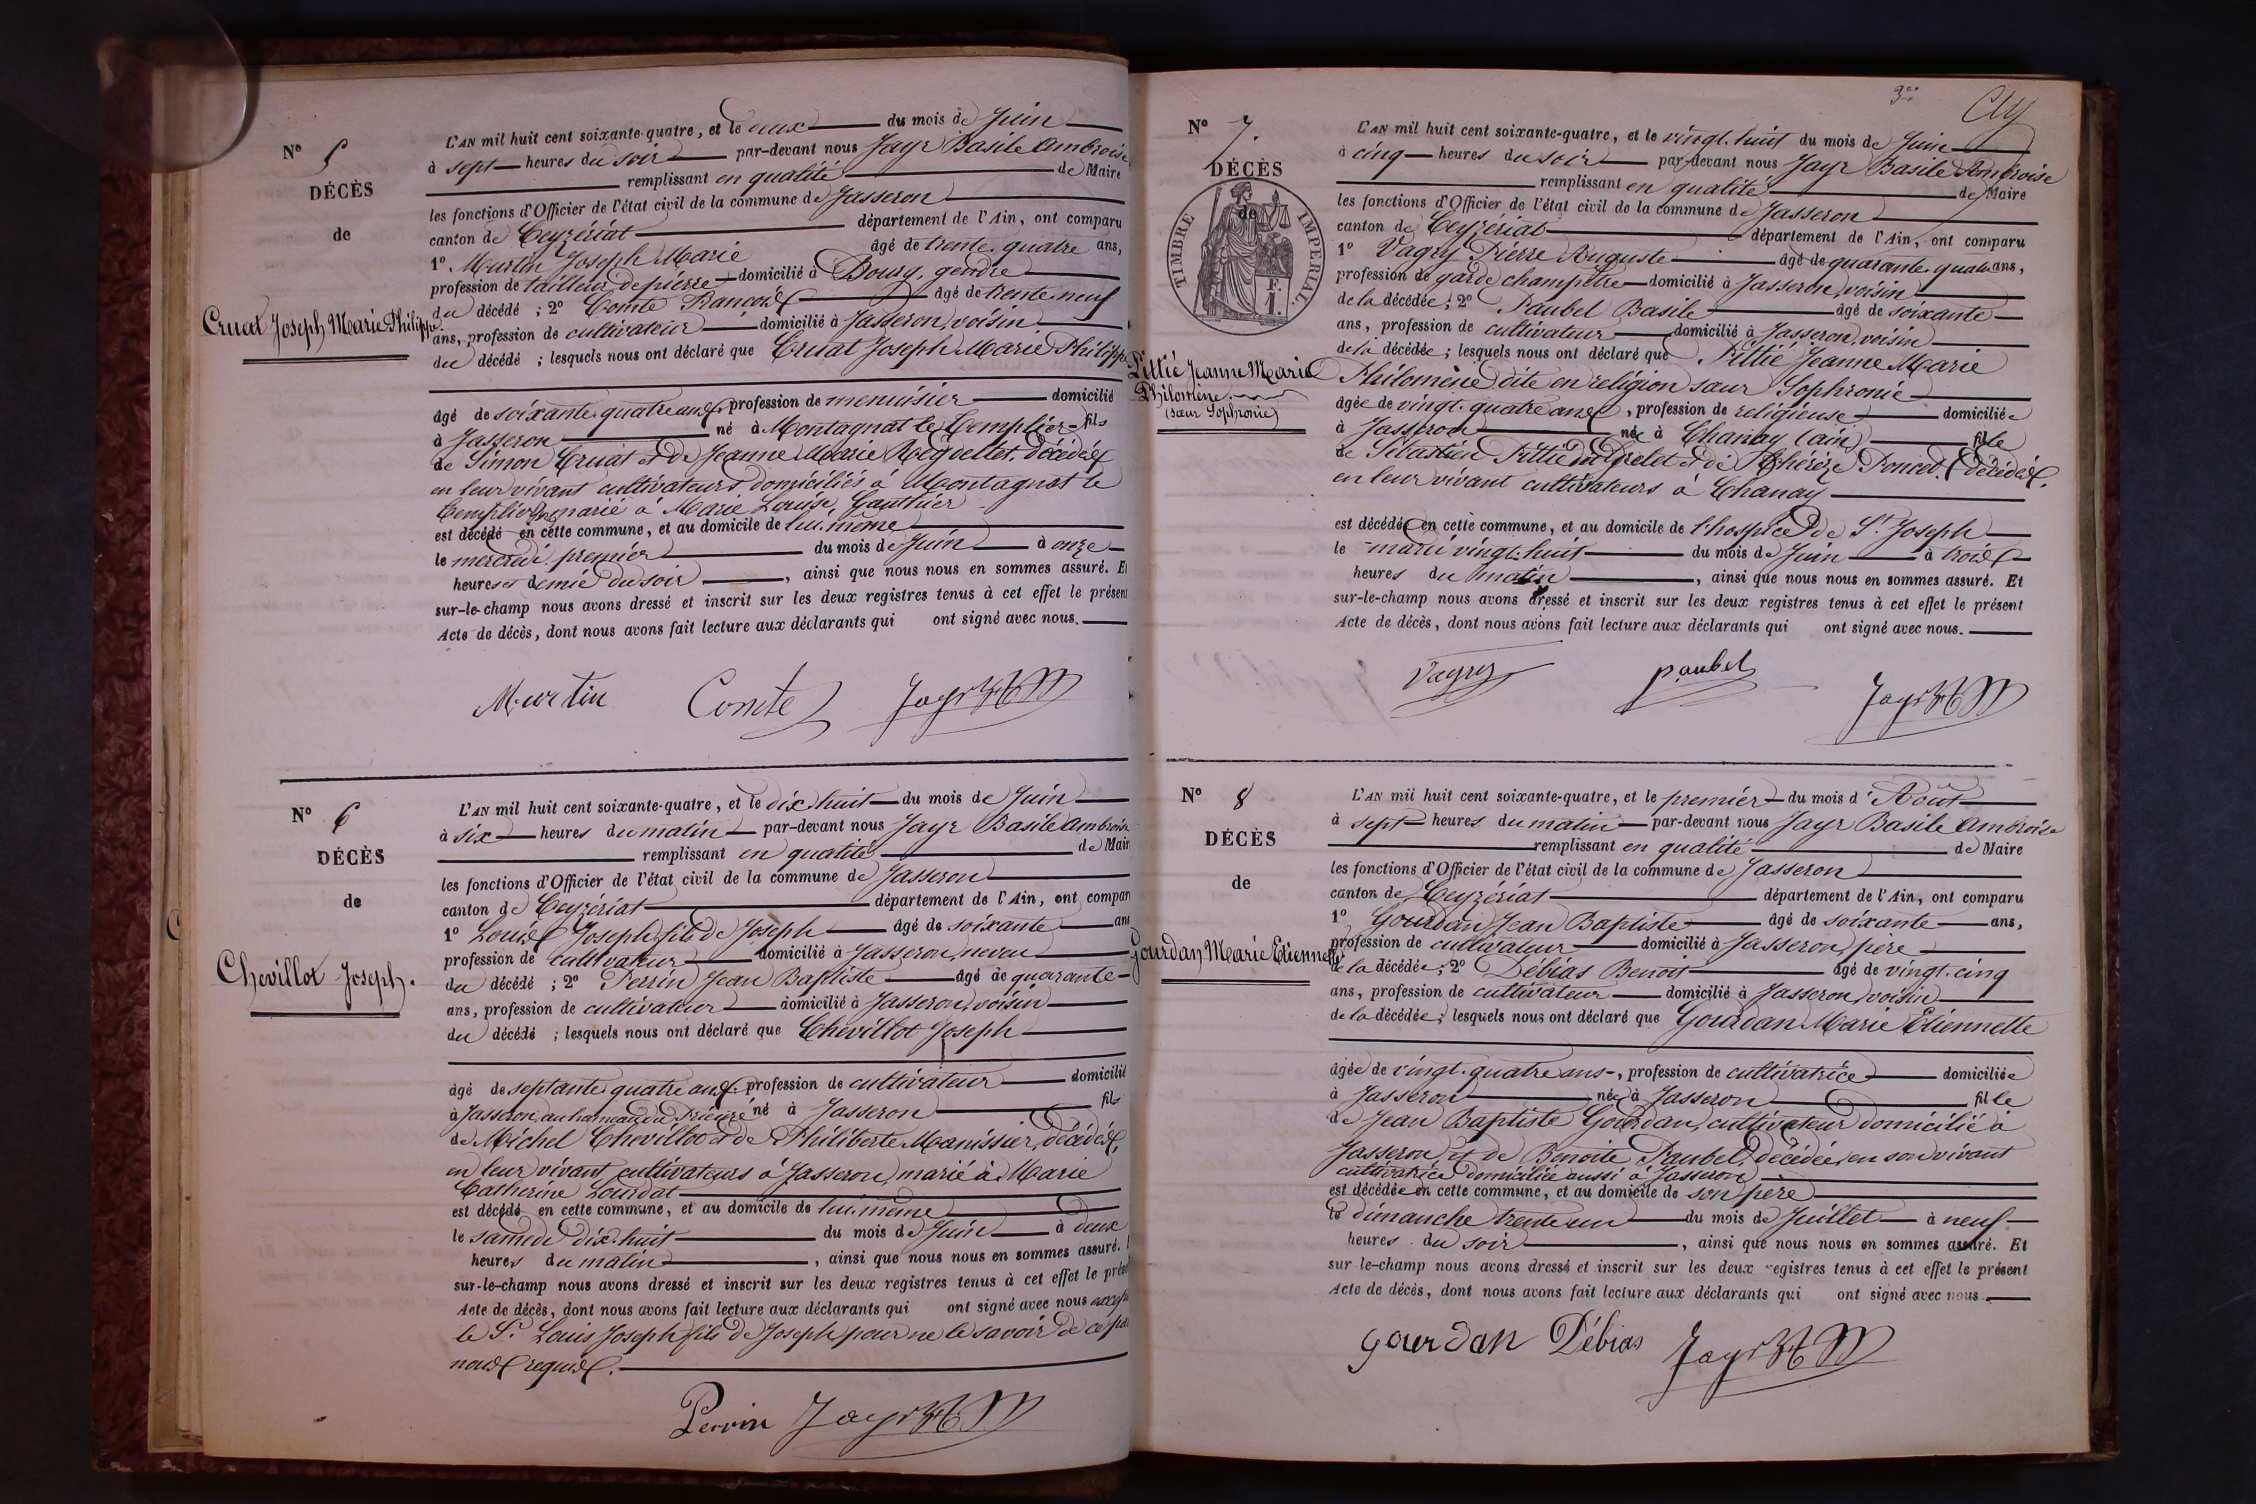 N° 5
DÉCÈS
de
Cruat Joseph Marie Philippe.
L'AN mil huit cent soixante-quatre, et le deux du mois de Juin
à sept heures du soir par-devant nous Jayr Basile Ambroise
remplissant en qualité de Maire
les fonctions d'Officier de l'état civil de la commune de Jasseron
canton de Ceyzériat département de l'Ain, ont comparu
1°. Murtin Joseph Marie âgé de trente quatre ans,
profession de tailleur de pierre domicilié à Bourg, gendre
du décédé ; 2° Comte François âgé de trente neuf
ans, profession de cultivateur domicilié à Jasseron, voisin
du décédé ; lesquels nous ont déclaré que Cruat Joseph Marie Philippe
âgé de soixante quatre ans, profession de menuisier domicilié
à Jasseron né à Montagnat le Templier fils
de Simon Cruat et de Jeanne Marie décédés
en leur vivant cultivateurs domiciliés à Montagnat le
Templier, marié à Marie Louise Gauthier
est décédé en cette commune, et au domicile de lui même
le mercredi premier du mois de Juin à onze
heures et demie du soir , ainsi que nous nous en sommes assuré. Et
sur-le-champ nous avons dressé et inscrit sur les deux registres tenus à cet effet le présent
Acte de décès, dont nous avons fait lecture aux déclarants qui ont signé avec nous.
Murtin Comte Jayr
N° 6
DÉCÈS
de
Chevillot Joseph.
L'AN mil huit cent soixante-quatre, et le dix huit du mois de Juin
à six heures du matin par-devant nous Jayr Basile Ambroise
remplissant en qualité de Maire
les fonctions d'Officier de l'état civil de la commune de Jasseron
canton de Ceyzériat département de l'Ain, ont comparu
1° Louis Joseph fils de Joseph âgé de soixante ans
profession de cultivateur domicilié à Jasseron, neveu
du décédé ; 2° Perrin Jean Baptiste âgé de quarante
ans, profession de cultivateur domicilié à Jasseron, voisin
du décédé ; lesquels nous ont déclaré que Chevillot Joseph
âgé de septante quatre ans, profession de cultivateur domicilié
à Jasseron, au hameau du Prieuré né à Jasseron fils
de Michel Chevillot et de Philiberte Manissier, décédés,
en leur vivant cultivateurs à Jasseron, marié à Marie
Catherine Lourdat
est décédé en cette commune, et au domicile de lui même
le samedi dix huit du mois de Juin à deux
heures du matin , ainsi que nous nous en sommes assuré.
sur-le-champ nous avons dressé et inscrit sur les deux registres tenus à cet effet le présent
Acte de décès, dont nous avons fait lecture aux déclarants qui ont signé avec nous excepté
le Sr. Louis Joseph fils de Joseph pour ne le savoir de ce par
nous requis.
Perrin Jayr
3
N° 7.
DÉCÈS
de
TIMBRE IMPERIAL
F.
1.
Pittié Jeanne Marie
Philomène
(sœur Sophronie)
L'AN mil huit cent soixante-quatre, et le vingt huit du mois de Juin
à cinq heures du soir par-devant nous Jayr Basile Ambroise
remplissant en qualité de Maire
les fonctions d'Officier de l'état civil de la commune de Jasseron
canton de Ceyzériat département de l'Ain, ont comparu
1° Vagry Pierre Auguste âgé de quarante quatre ans,
profession de garde champêtre domicilié à Jasseron, voisin
de la décédée ; 2° Paubel Basile âgé de soixante
ans, profession de cultivateur domicilié à Jasseron, voisin
de la décédée ; lesquels nous ont déclaré que Pittié Jeanne Marie
Philomène, dite en religion sœur Sophronie
âgée de vingt quatre ans , profession de religieuse domiciliée
à Jasseron née à Chanay (ain) fille
de Sébastien Pittié et de Thérèze Poncet décédés.
en leur vivant cultivateurs à Chanay
est décédée en cette commune, et au domicile de l'hospice de St Joseph
le mardi vingt huit du mois de Juin à trois
heures du matin , ainsi que nous nous en sommes assuré. Et
sur-le-champ nous avons dressé et inscrit sur les deux registres tenus à cet effet le présent
Acte de décès, dont nous avons fait lecture aux déclarants qui ont signé avec nous.
Vagry paubel Jayr
N° 8
DÉCÈS
de
Gourdan Marie Etiennette
L'AN mil huit cent soixante-quatre, et le premier du mois d'Août
à sept heures du matin par-devant nous Jayr Basile Ambroise
remplissant en qualité de Maire
les fonctions d'Officier de l'état civil de la commune de Jasseron
canton de Ceyzériat département de l'Ain, ont comparu
1° Gourdan Jean Baptiste âgé de soixante ans,
profession de cultivateur domicilié à Jasseron, père
de la décédée ; 2° Débias Benoit âgé de vingt cinq
ans, profession de cultivateur domicilié à Jasseron, voisin
de la décédée ; lesquels nous ont déclaré que Gourdan Marie Etiennette
âgée de vingt quatre ans , profession de cultivatrice domiciliée
à Jasseron née à Jasseron fille
de Jean Baptiste Gourdan, cultivateur domicilié à
Jasseron et de Benoite Paubel, décédée, en son vivant
cultivatrice domiciliée aussi à Jasseron
est décédée en cette commune, et au domicile de son père
le dimanche trente un du mois de Juillet à neuf
heures du soir , ainsi que nous nous en sommes assuré. Et
sur le-champ nous avons dressé et inscrit sur les deux registres tenus à cet effet le présent
Acte de décès, dont nous avons fait lecture aux déclarants qui ont signé avec nous
gourdan Débias Jayr